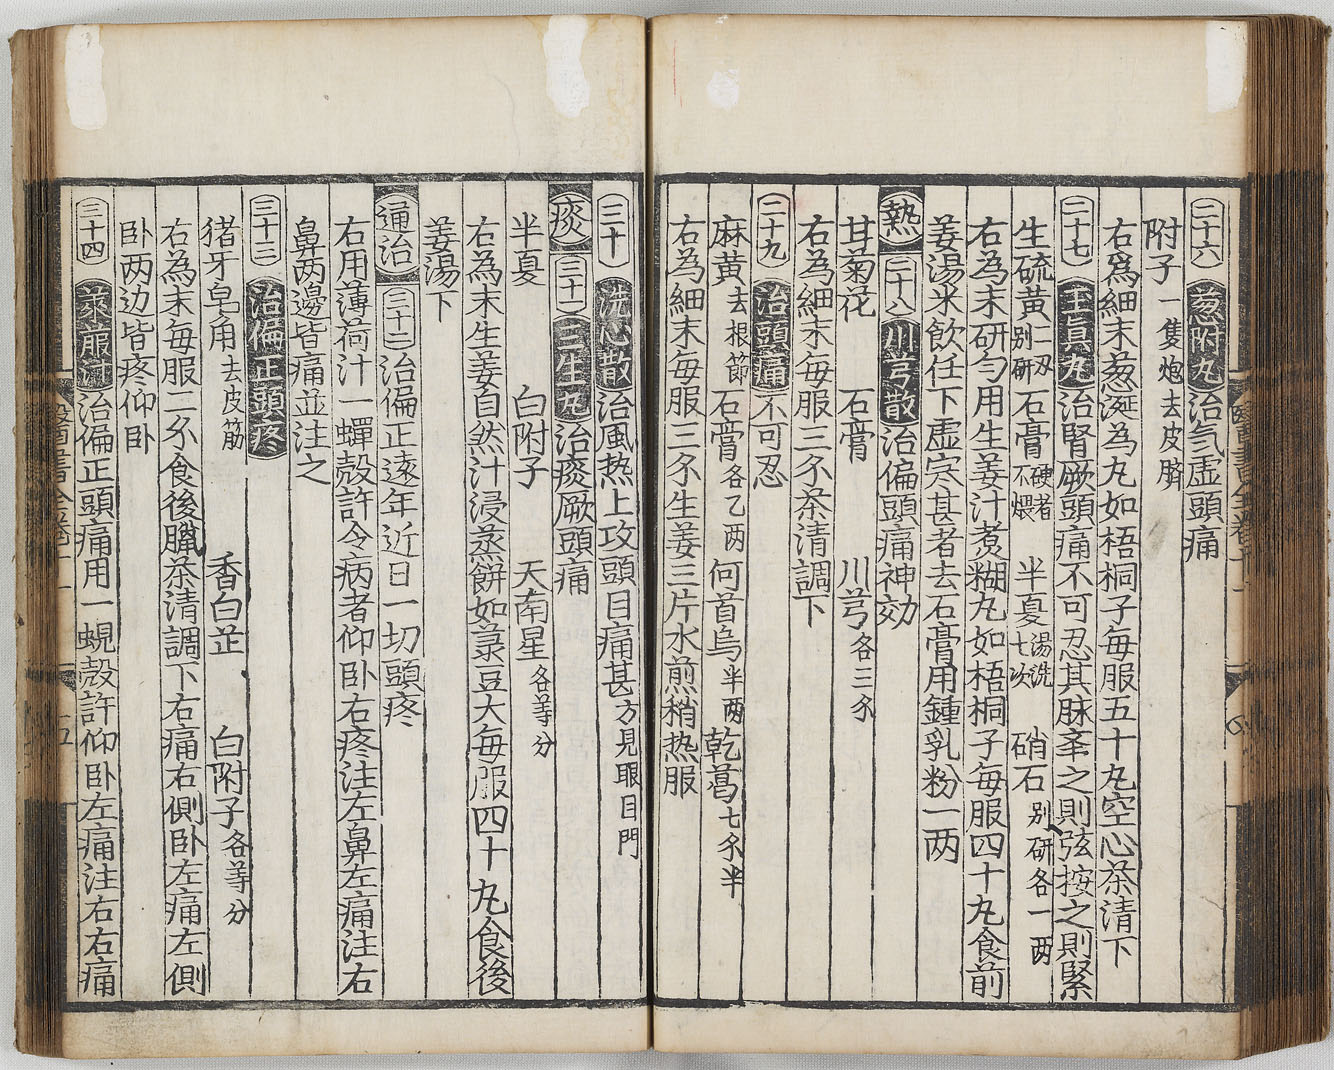 二十六 葱附丸 治气虛頭痛
附子 一隻炮去皮臍
右爲細末葱涎為丸如梧桐子每服五十丸空心茶清下
二十七 玉眞丸 治腎厥頭痛不可忍其脉㪯之則弦按之則緊
生硫黄 二刄别研 石膏 硬者不煨 半夏 湯洗七次 硝石 别研各一两
右為末研勻用生姜汁煮糊丸如梧桐子每服四十丸食前
姜湯米飲任下虛寒甚者去石膏用鍾乳粉一两
熱 二十八 川芎散 治偏頭痛神効
甘菊花 石膏 川芎 各三分
右為細末每服三分茶清調下
二十九 治頭痛 不可忍
麻黄 去根節 石膏 各乙两 何首烏 半两 乾葛 七分半
右為細末每服三分生姜三片水煎稍热服
三十 洗心散 治風热上攻頭目痛甚 方見眼目門
痰 三十一 三生丸 治痰厥頭痛
半夏 白附子 天南星 各等分
右為末生姜自然汁浸蒸餅如菉豆大每服四十丸食後
姜湯下
通治 三十二 治偏正遠年近日一切頭疼
右用薄荷汁一蟬殻許令病者仰卧右疼注左鼻左痛注右
鼻两邊皆痛並注之
三十三 治偏正頭疼
猪牙皂角 去皮筋 香白芷 白附子 各等分
右為末每服二分食後臘茶清調下右痛右側卧左痛左側
卧两边皆疼仰卧
三十四 萊服汁 治偏正頭痛用一蜆殻許仰卧左痛注右右痛